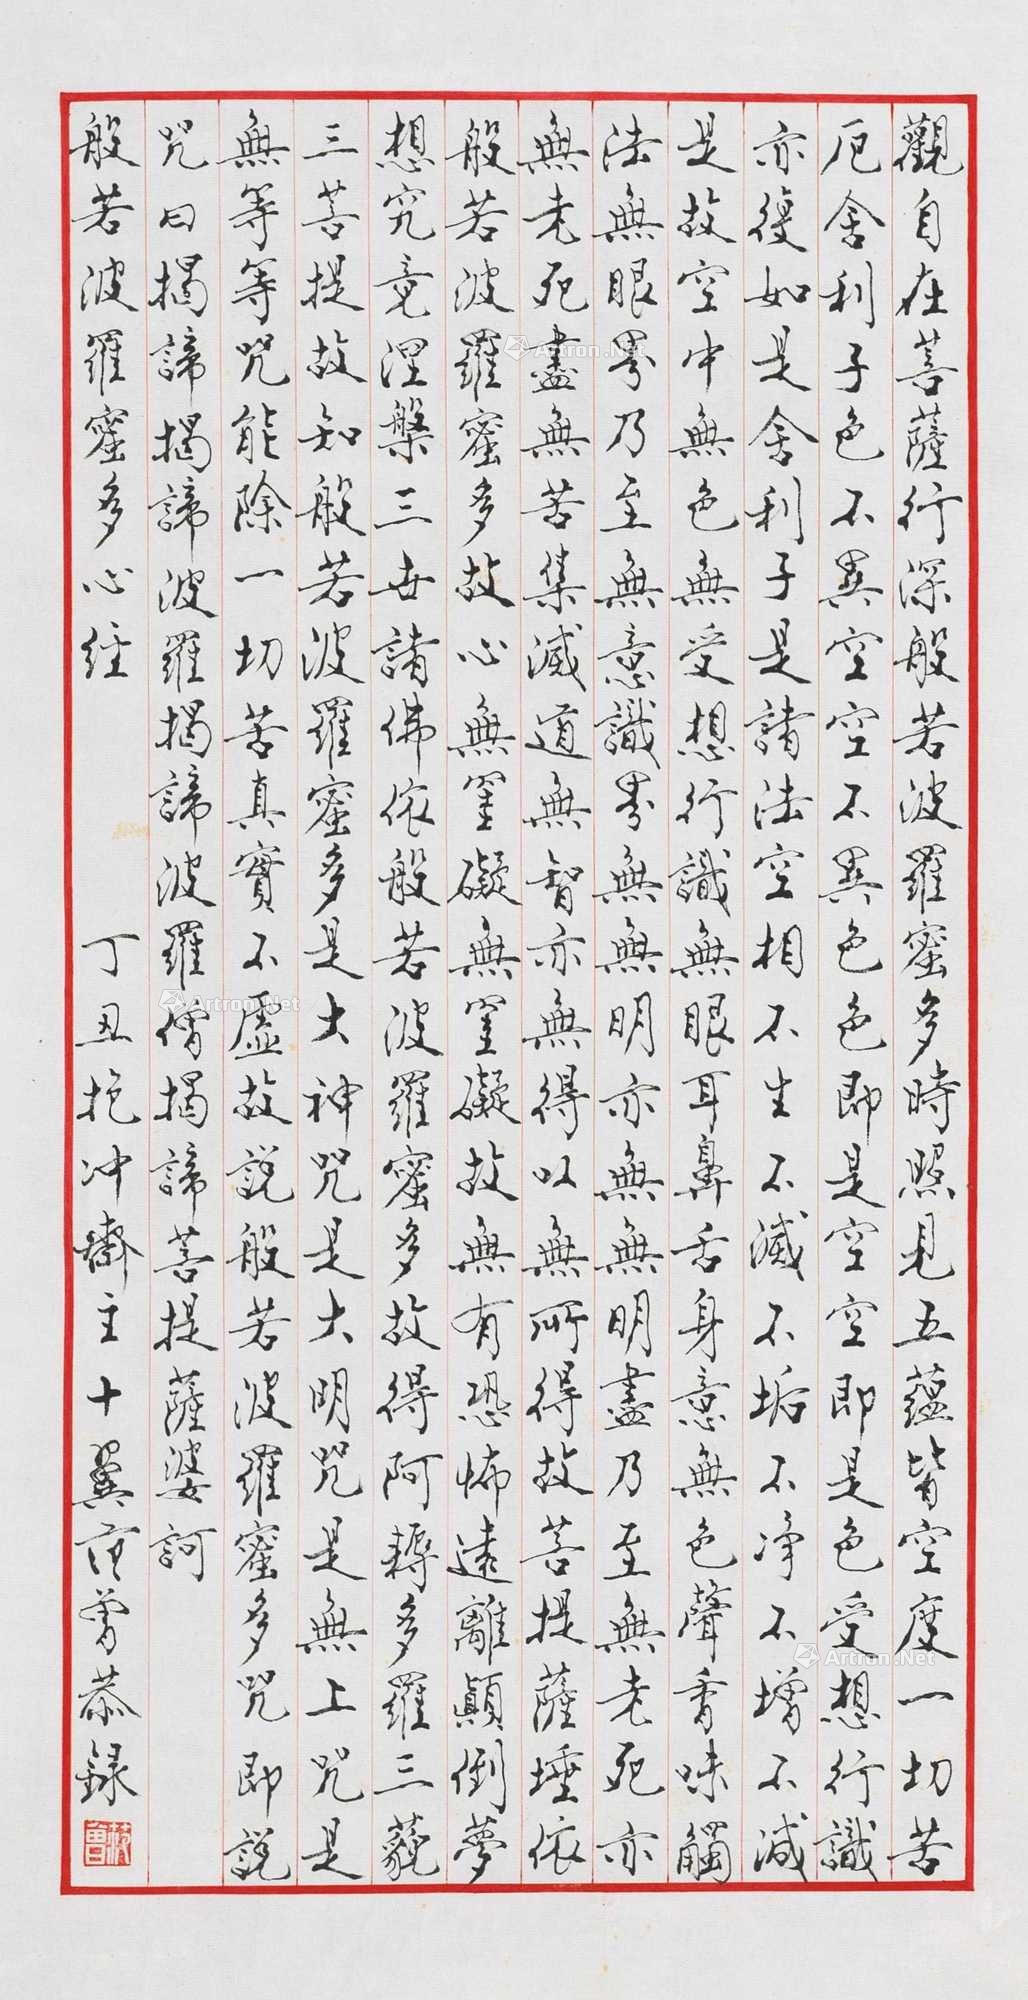 觀自在菩薩行深般若波羅蜜多時照見五蘊皆空度一切苦
厄舍利子色不異空空不異色色即是空空即是色受想行識
亦復如是舍利子是諸法空相不生不滅不垢不淨不增不減
是故空中無色無受想行識無眼耳鼻舌身意無色聲香味觸
法無眼界乃至無意識界無無明亦無無明盡乃至無老死亦
無老死盡無苦集滅道無智亦無得以無所得故菩提薩埵依
般若波羅蜜多故心無罣礙無罣礙故無有恐怖遠離顛倒夢
想究竟涅槃三世諸佛依般若波羅蜜多故得阿耨多羅三藐
三菩提故知般若波羅蜜多是大神咒是大明咒是無上咒是
無等等咒能除一切苦真實不虛故說般若波羅蜜多咒即說
咒曰揭諦揭諦波羅揭諦波羅僧揭諦菩提薩婆訶
般若波羅蜜多心經 丁丑抱冲齋主十翼范曾恭錄
范曾
Artron.Net
Artron.Net
Artron.Net